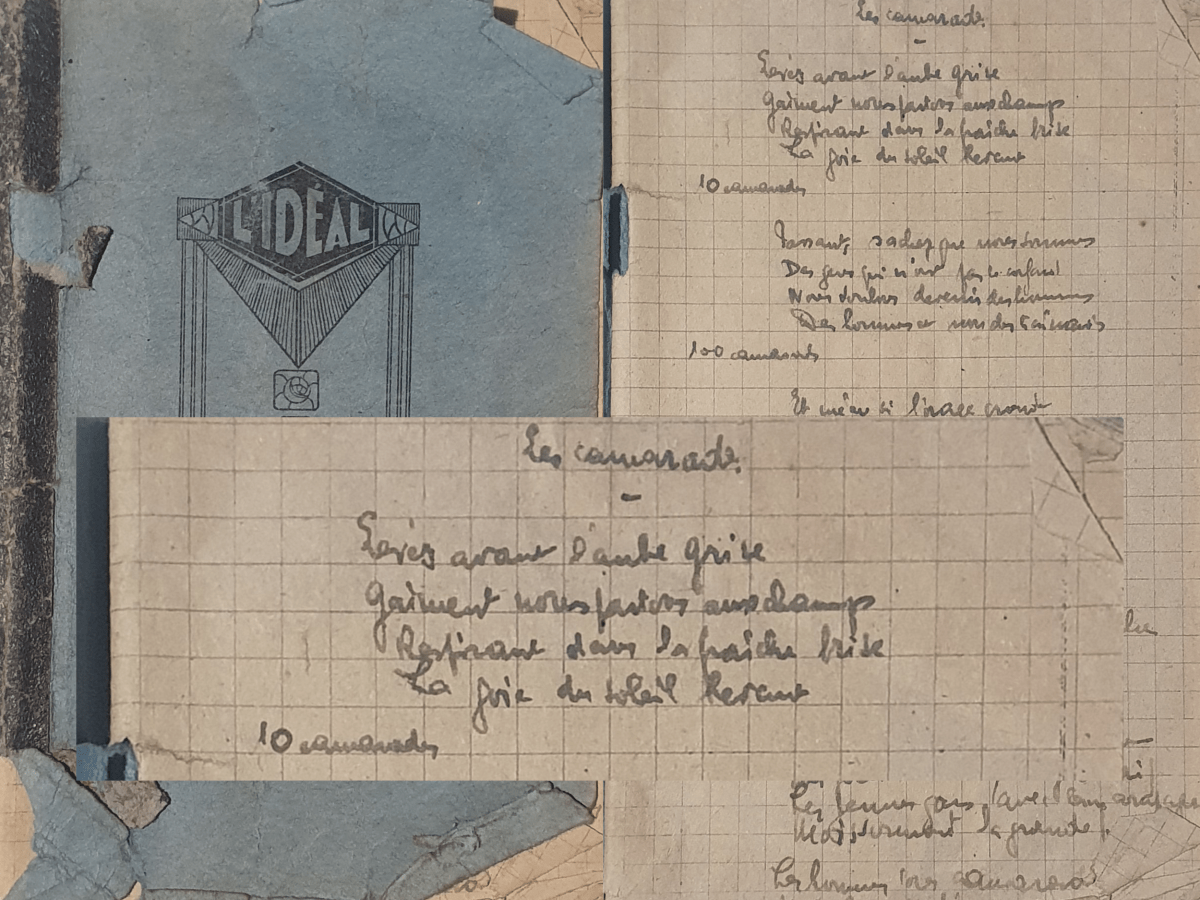 L'IDÉAL
Les camarade.
Levés avant l'aube grise
Gaiment nous partons aux champs
Respirant dans la fraîche brise
La joie du soleil levant
10 camarades
Passant, sachez que nous sommes
Des gens qui n'ont pas
Nous voulons devenir des hommes
Des hommes et non des
100 camarades
Et même si l'orage gronde
Les camarade.
Levés avant l'aube grise
Gaiment nous partons aux champs
Respirant dans la fraîche brise
La joie du soleil levant
10 camarades
Les jeunes gens
Moissonnent la grande
Les hommes